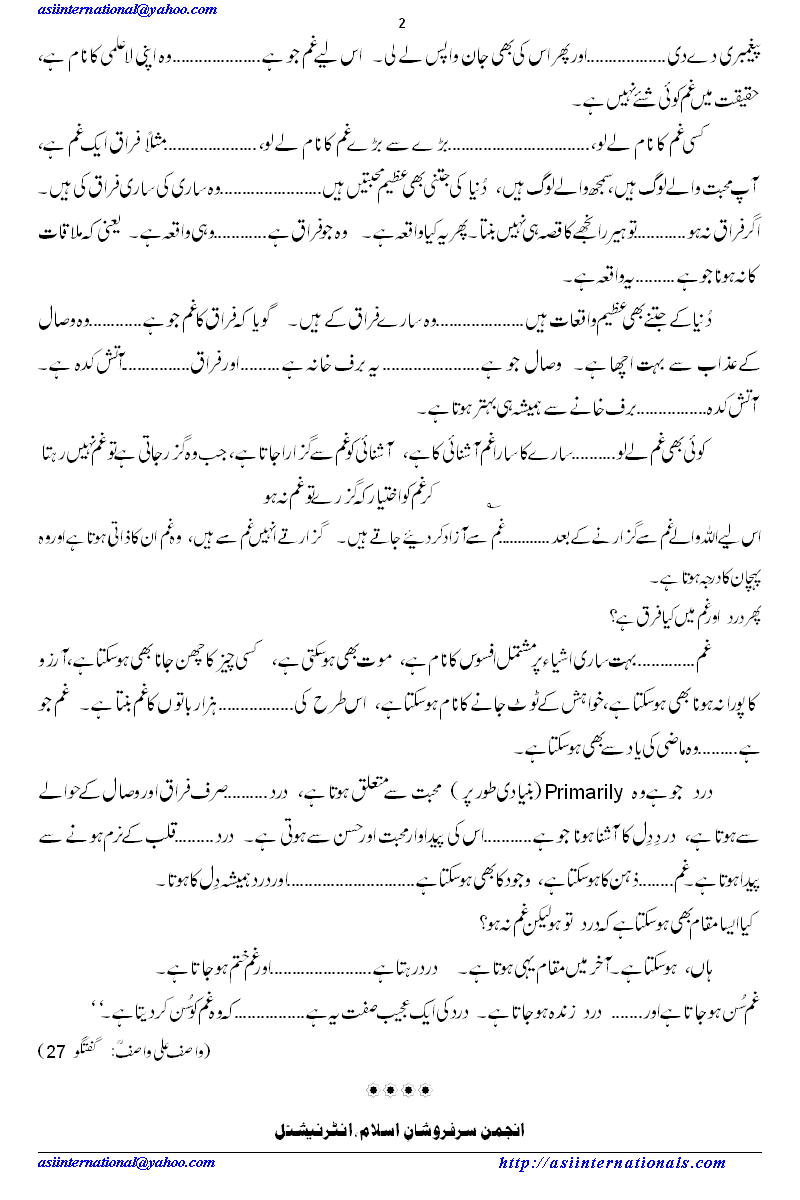 asiinternational@yahoo.com
2
پیغمبری دے دی..................اور پھر اس کی بھی جان واپس لے لی۔ اس لیے غم جو ہے....................وہ اپنی لاعلمی کا نام ہے،
حقیقت میں غم کوئی شئے نہیں ہے۔
کسی غم کا نام لے لو،................................بڑے سے بڑے غم کا نام لے لو،.....................مثلاً فراق ایک غم ہے،
آپ محبت والے لوگ ہیں، سمجھ والے لوگ ہیں، دُنیا کی جتنی بھی عظیم محبتیں ہیں.......................وہ ساری کی ساری فراق کی ہیں۔
اگر فراق نہ ہو...........تو ہیر رانجھے کا قصہ ہی نہیں بنتا۔ پھر یہ کیا واقعہ ہے۔ وہ جو فراق ہے............وہی واقعہ ہے۔ یعنی کہ ملاقات
کا نہ ہونا جو ہے.........یہ واقعہ ہے۔
دُنیا کے جتنے بھی عظیم واقعات ہیں....................وہ سارے فراق کے ہیں۔ گویا کہ فراق کا غم جو ہے............وہ وصال
کے عذاب سے بہت اچھا ہے۔ وصال جو ہے......................یہ برف خانہ ہے.........اور فراق...............آتش کدہ ہے۔
آتش کدہ................برف خانے سے ہمیشہ ہی بہتر ہوتا ہے۔
کوئی بھی غم لے لو..........سارے کا سارا غم آشنائی کا ہے، آشنائی کو غم سے گزارا جاتا ہے، جب وہ گزر جاتی ہے تو غم نہیں رہتا
؎ کر غم کو اختیار کہ گزرے تو غم نہ ہو
اس لیے اللہ والے غم سے گزارنے کے بعد............غم سے آزاد کر دیئے جاتے ہیں۔ گزارتے انہیں غم سے ہیں، وہ غم ان کا ذاتی ہوتا ہے اور وہ
پہچان کا درجہ ہوتا ہے۔
پھر درد اور غم میں کیا فرق ہے؟
غم.............بہت ساری اشیاء پر مشتمل افسوس کا نام ہے، موت بھی ہو سکتی ہے، کسی چیز کا چھن جانا بھی ہو سکتا ہے، آرزو
کا پورا نہ ہونا بھی ہو سکتا ہے، خواہش کے ٹوٹ جانے کا نام ہو سکتا ہے، اس طرح کی.................ہزار باتوں کا غم بنتا ہے۔ غم جو
ہے.........وہ ماضی کی یاد سے بھی ہو سکتا ہے۔
درد جو ہے وہ Primarily (بنیادی طور پر) محبت سے متعلق ہوتا ہے، درد..........صرف فراق اور وصال کے حوالے
سے ہوتا ہے، دردِ دِل کا آشنا ہونا جو ہے...........اس کی پیداوار محبت اور حسن سے ہوتی ہے۔ درد.........قلب کے نرم ہونے سے
پیدا ہوتا ہے۔ غم........ذہن کا ہو سکتا ہے، وجود کا بھی ہو سکتا ہے.............................اور درد ہمیشہ دِل کا ہوتا۔
کیا ایسا مقام بھی ہو سکتا ہے کہ درد تو ہو لیکن غم نہ ہو؟
ہاں، ہو سکتا ہے۔ آخر میں مقام یہی ہوتا ہے۔ درد رہتا ہے......................اور غم ختم ہو جاتا ہے۔
غم سُن ہو جاتا ہے اور....... درد زندہ ہو جاتا ہے۔ درد کی ایک عجیب صفت یہ ہے................کہ وہ غم کو سُن کر دیتا ہے۔‘‘
(واصف علی واصفؒ: گفتگو 27)
انجمن سرفروشانِ اسلام، انٹرنیشنل
asiinternational@yahoo.com
http://asiinternationals.com